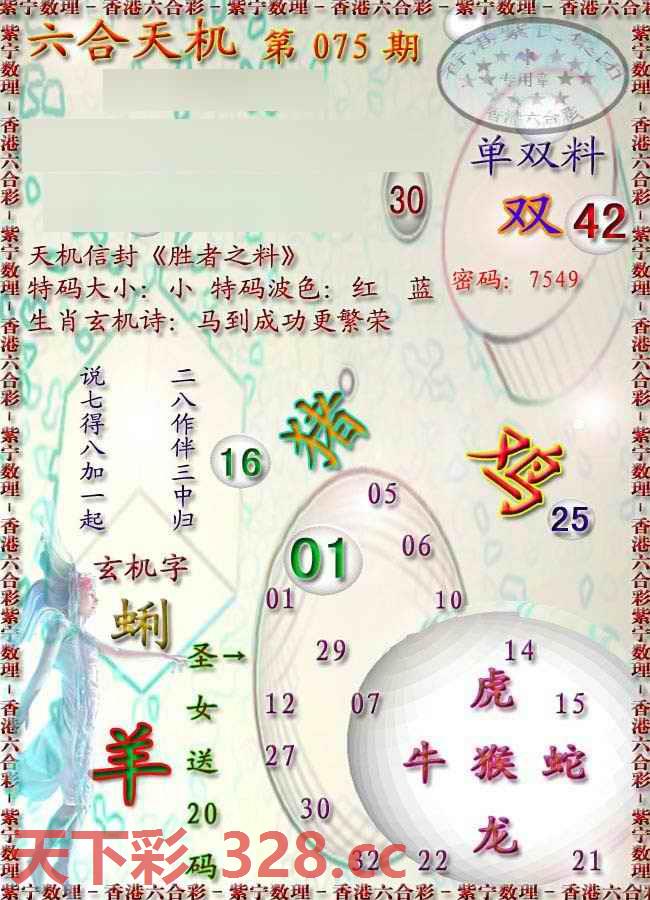 紫宁数理－香港六合彩－紫宁数理－香港六合彩－紫宁数理－香港六合彩
六合天机 第 075 期
专用章
香港六合彩
单双料
双 42
30
天机信封《胜者之料》
特码大小：小 特码波色：红 蓝
密码：7549
生肖玄机诗：马到成功更繁荣
二八作伴三中归
说七得八加一起
猪
16
鸡
25
05
01
06
玄机字
蜊
01
10
圣女送20码→
29
14
虎
12
07
15
羊
27
牛 猴 蛇
30
龙
32
22
21
天下彩 328.cc
紫宁数理－香港六合彩－紫宁数理－香港六合彩－紫宁数理－香港六合彩